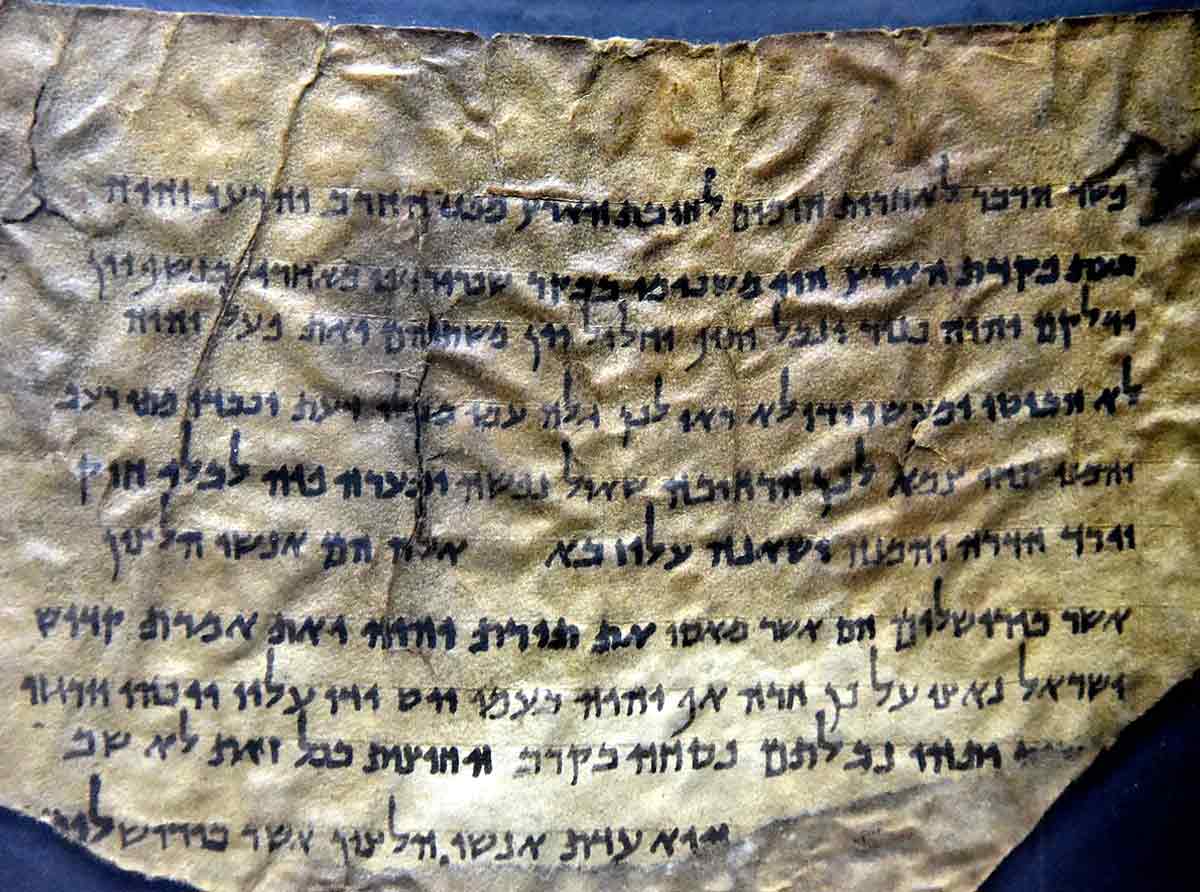 פשר הדבר לאחרית הימים לחובת הארץ מפני החרב והרעב והיה
בעת פקדת הארץ הוי משכימי בבקר שכר ירדפו מאחרי בנשף יין
ידלקם והיה כנור ונבל ותוף וחליל יין משתיהם ואת פעל יהוה
לא הביטו ומעשי ידו לא ראו לכן גלה עמי מבלי דעת וכבדו מתי רעב
והמנו צחי צמא לכן הרחיבה שאול נפשה ופערה פיה לבלי חוק
וירד הדרה והמנה ושאנה עליז בא אלה הם אנשי הלצון
אשר בירושלים הם אשר מאסו את תורת יהוה ואת אמרת קדוש
ישראל נאצו על כן חרה אף יהוה בעמו ויט ידו עליו ויכהו וירגזו
ותהי נבלתם כסחה בקרב החוצות בכל זאת לא שב
היא עדת אנשי הלצון אשר בירושלים